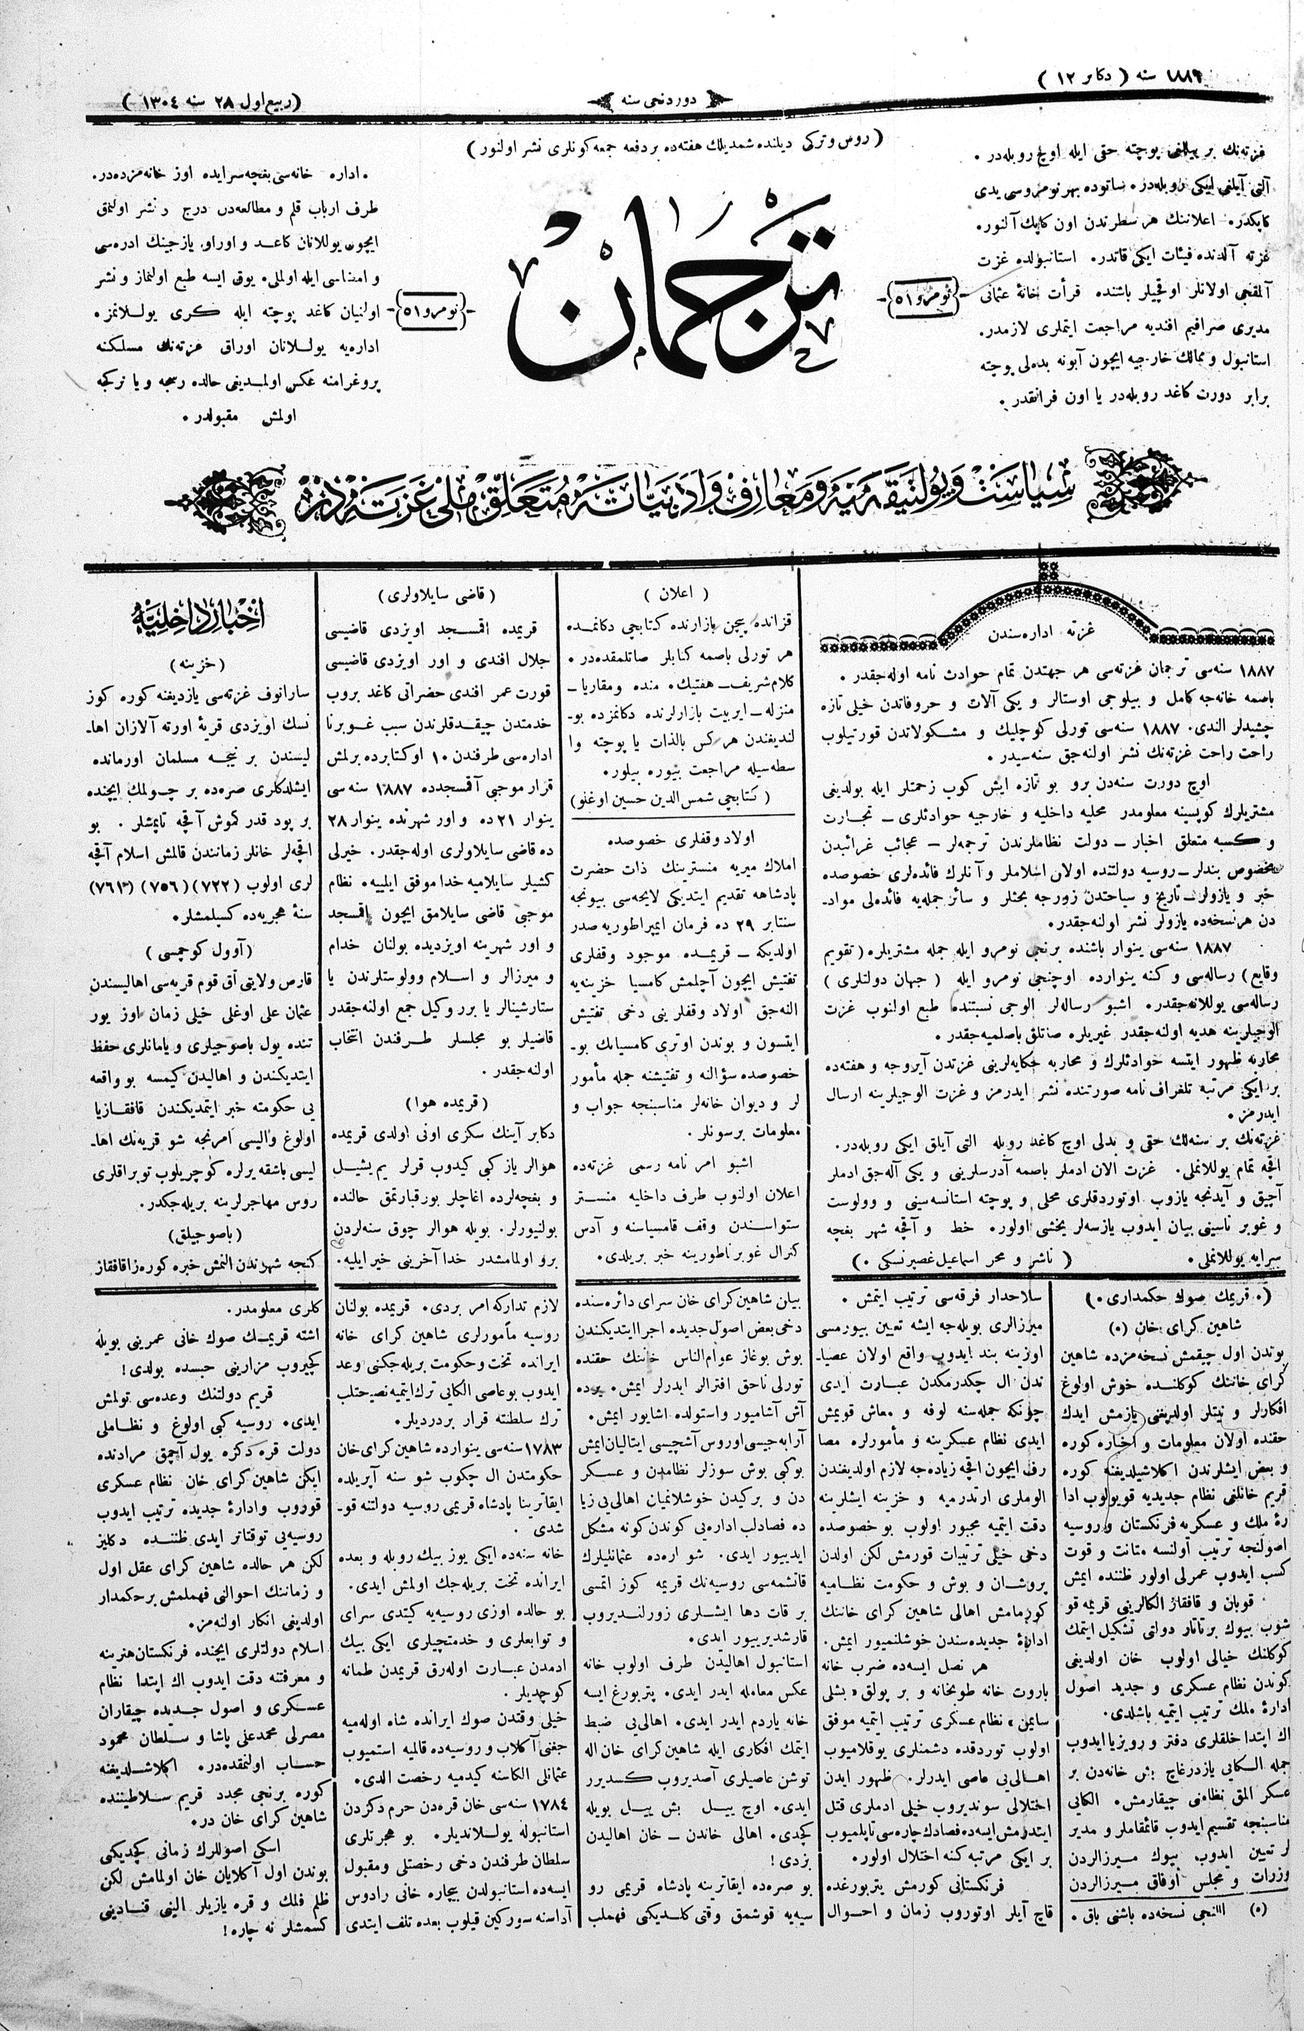 ١٨٨٦ سنه ( دكابر ١٢ )
دوردنجی سنه
( ربيع اول ٢٨ سنه ١٣٠٤ )
( روس و تركی ديلنده شمديلك هفته ده بر دفعه جمعه كونلری نشر اولنور )
غزته نك بر ييللغی پوچته حقی ايله اوچ روبله در .
آلتی آيلغی ايكی روبله در . ساتوده بهر نومروسی يدی
كاپكدر . اعلاننك هر سطرندن اون كاپك آلنور .
غزته آلدنده فيئات ايكی قاتدر . استانبولده غزت
آلمقجی اولانلر اوقچيلر باشنده قرأت خانهٔ عثمانی
مديری صرافيم افنديه مراجعت ايتملری لازمدر .
استانبول و ممالك خارجيه ايچون آبونه بدلی پوچته
برابر دورت كاغد روبله در يا اون فرانقدر .
نومرو ٥١
ترجمان
نومرو ٥١
. اداره خانه سی بغچه سرايده اوز خانه مزده در .
طرف ارباب قلم و مطالعه دن درج و نشر اولنمق
ايچون يوللانان كاغد و اوراق يازجينك ادره سی
و امضاسی ايله اولملی . يوق ايسه طبع اولنماز و نشر
اولنيان كاغد پوچته ايله كری يوللانمز .
اداره يه يوللانان اوراق غزته نك مسلكنه
پروغرامنه عكس اولمديغی حالده رسجه و يا تركجه
اولمش مقبولدر .
سياست و پوليتيقه يه و معارف و ادبياته متعلق ملی غزته در
غزته اداره سندن
١٨٨٧ سنه سی ترجمان غزته سی هر جهتدن تمام حوادث نامه اوله جقدر .
باصمه خانه جه كامل و بيلوجی اوستالر و يكی آلات و حروفاتدن خيلی تازه
چشيدلر الندی . ١٨٨٧ سنه سی تورلی كوچليك و مشكولاتدن قورتيلوب
راحت راحت غزته نك نشر اولنه جق سنه سيدر .
اوچ دورت سنه دن برو بو تازه ايش كوپ زحمتلر ايله بولديغی
مشتريلرك كوپسينه معلومدر محليه داخليه و خارجيه حوادثلری – تجارت
و كسبه متعلق اخبار – دولت نظاملرندن ترجمه لر – عجائب غرائبدن
مخصوص بندلر – روسيه دولتنده اولان اسلاملر و آنلرك فائده لری خصوصده
خبر و يازولر – تاريخ و سياحتدن زورجه بحثلر و سائر جمله يه فائده لی مواد-
دن هر نسخه ده يازولر نشر اولنه جقدر .
١٨٨٧ سنه سی ينوار باشنده برنجی نومرو ايله جمله مشتريلره ( تقويم
وقايع ) رساله سی و كنه ينوارده اوچنجی نومرو ايله ( جهان دولتلری )
رساله سی يوللانه جقدر . اشبو رساله لر الوجی نسبتنده طبع اولنوب غزت
الوجيلرينه هديه اولنه جقدر غيريلره صتلق باصلميه جقدر .
محاربه ظهور ايتسه حوادثلرك و محاربه حكايه لرينی غزتدن آيروجه و هفته ده
بر ايكی مرتبه تلغراف نامه صورتنده نشر ايدرمز و غزت الوجيلرينه ارسال
ايدرمز .
غزته نك بر سنه لك حقی و بدلی اوچ كاغد روبله التی آيلق ايكی روبله در .
اقچه تمام يوللانملی . غزت الان ادملر باصمه آدرسلرينی و يكی آله جق ادملر
آچيق و آيدنجه يازوب اوتوردقلری محلی و پوچته استانسه سينی و وولوست
و غوبرناسينی بيان ايدوب يازسه لر يخشی اولور . خط و آقچه شهر بغچه
سرايه يوللانملی . ( ناشر و محرر اسماعيل غصپرنسكی . )
( اعلان )
قزانده پچن بازارنده كتابجی دكانمده
هر تورلی باصمه كتابلر صاتلمقده در .
كلام شريف – هفتيك . منده و مقاريا –
منزله – ايربيت بازارلرنده دكانمزده بو-
لنديغندن هر كس بالذات يا پوچته وا
سطه سيله مراجعت بيوره بيلور .
( كتابچی شمس الدين حسين اوغلو )
اولاد وقفلری خصوصده
املاك ميريه منسترينك ذات حضرت
پادشاهه تقديم ايتديكی لايحه سی بيونجه
سنتابر ٢٩ ده فرمان ايمپراطوريه صدر
اولديكه – قريمده موجود وقفلری
تفتيش ايچون آچلمش كامسيا خزينه يه
النه جق اولاد وقفلرينی دخی تفتيش
ايتسون و بوندن اوتری كامسيانك بو-
خصوصده سؤالنه و تفتيشنه جمله مأمور
لر و ديوان خانه لر مناسبنجه جواب و
معلومات برسونلر .
اشبو امر نامه رسمی غزته ده
اعلان اولنوب طرف داخليه منستر
ستواسندن وقف قامسياسنه و آدس
كنرال غوبرناطورينه خبر بريلدی .
( قاضی سايلاولری )
قريمده اقمسجد اويزدی قاضيسی
جلال افندی و اور اويزدی قاضيسی
قورت عمر افندی حضراتی كاغد بروب
خدمتدن چيقدقلرندن سبب غوبرنا
اداره سی طرفندن ١٠ اوكتابرده برلمش
قرار موجبی آقمسجدده ١٨٨٧ سنه سی
ينوار ٢١ ده و اور شهرنده ينوار ٢٨
ده قاضی سايلاولری اوله جقدر . خيرلی
كشيلر سايلاميه خدا موفق ايلييه . نظام
موجبی قاضی سايلامق ايچون اقمسجد
و اور شهرينه اويزديده بولنان خدام
و ميرزالر و اسلام وولوستلرندن يا
ستارشينالر يا برر وكيل جمع اولنه جقدر
قاضيلر بو مجلسلر طرفندن انتخاب
اولنه جقدر .
( قريمده هوا )
دكابر آينك سكزی اونی اولدی قريمده
هوالر ياز كبی كيدوب قرلر يم يشيل
و بغچه لرده اغاچلر بورقبارتمق حالنده
بولنيورلر . بويله هوالر چوق سنه لردن
برو اولمامشدر خدا آخرينی خير ايليه .
اخبار داخليه
( خزينه )
سارانوف غزته سی يازديغنه كوره كوز
نسك اويزدی قريهٔ اورته آلازان اها-
ليسندن بر نيجه مسلمان اورمانده
ايشلدكلری صره ده بر چولمك ايچنده
بر پود قدر كموش آقچه تاپمشلر . بو
اقچه لر خانلر زمانندن قالمش اسلام آقچه
لری اولوب (٧٢٢) (٧٥٦) (٧٦١٣)
سنهٔ هجريه ده كسيلمشلر .
( آوول كوچمسی )
قارص ولايتی آق قوم قريه سی اهاليسندن
عثمان علی اوغلی خيلی زمان اوز يور
تنده يول باصوجيلری و يامانلری حفظ
ايتديكندن و اهاليدن كيمسه بو واقعه
يی حكومته خبر ايتمديكندن قافقازيا
اولوغ واليسی امرنجه شو قريه نك اها-
ليسی باشقه يرلره كوچريلوب توبراقلری
روس مهاجرلرينه بريله جكدر .
( باصوجيلق )
كنجه شهرندن النمش خبره كوره زاقافقاز
( . قريمك صوك حكمداری . )
شاهين كرای خان (٥)
بوندن اول چيقمش نسخه مزده شاهين
كرای خاننك كوكلنده خوش اولوغ
افكارلر و نيتلر اولديغنی يازمش ايدك
حقنده اولان معلومات و اخباره كوره
و بعض ايشلرندن اكلاشيلديغنه كوره
قريم خانلغنی نظام جديديه قويولوب ادا
رهٔ ملك و عسكريه فرنكستان و روسيه
اصولنجه ترتيب اولنسه متانت و قوت
كسب ايدوب عمرلی اولور ظننده ايمش
. قوبان و قافقاز الكالرينی قريمه قو
شوب بيوك بر تاتار دولتی تشكيل ايتمك
كوكلنك خيالی اولوب خان اولديغی
كوندن نظام عسكری و جديد اصول
ادارهٔ ملك ترتيب ايتميه باشلدی .
اك ابتدا خلقلری دفتر و رويزيا ايدوب
جمله الكايی يازدرغاچ بش خانه دن بر
عسكر المق نظامنی چيقارمش . الكايی
مناسبنجه تقسيم ايدوب قائمقاملر و مدير
لر تعيين ايدوب بيوك ميرزالردن
وزرات و مجلس اوفاق ميرزالردن
(٥) ااانجی نسخه ده باشنی باق .
سلاحدار فرقه سی ترتيب ايتمش .
ميرزالری بويله جه ايشه تعيين بيورمسی
اوزينه بند ايدوب واقع اولان عصيا-
تدن ال چكدرمكدن عبارت ايدی
چونكه جمله سنه لوفه و معاش قويمش
ايدی نظام عسكرينه و مأمورلره مصا
رف ايچون اقچه زياده جه لازم اولديغندن
الوملری ارتدرميه و خزينه ايشلرينه
دقت ايتميه مجبور اولوب بو خصوصده
دخی خيلی ترتيبات قورمش لكن اولدن
پروشان و بوش و حكومت نظاميه
كورمامش اهالی شاهين كرای خاننك
ادارهٔ جديده سندن خوشلنميور ايمش .
هر نصل ايسه ده ضرب خانه
باروت خانه طوبخانه و بر پولق « بشلی
سايمن » نظام عسكری ترتيب ايتميه موفق
اولوب توردقده دشمنلری يوقلاميوب
اهالی يی عاصی ايدرلر . ظهور ايدن
اختلالی سونديروب خيلی ادملری قتل
ايتدرمش ايسه ده فصادك چاره سی تاپلميوب
بر ايكی مرتبه كنه اختلال اولور .
فرنكستانی كورمش پتربورغده
قاچ آيلر اوتوروب زمان و احوال
بيان شاهين كرای خان سرای دائره سنده
دخی بعض اصول جديده اجرا ايتديكندن
بوش بوغاز عوام الناس خاننك حقنده
تورلی ناحق افترالر ايدرلر ايمش . يرده
آش آشاميور و استولده اشايور ايمش .
آرابه جيسی اوروس آشچيسی ايتاليان ايمش
بوكبی بوش سوزلر نظامدن و عسكر
دن و بركيدن خوشلانميان اهالی يی زيا
ده فصادلب اداره يی كوندن كونه مشكل
ايديبيور ايدی . شو اره ده عثمانليلرك
قانشمه سی روسيه نك قريمه كوز اتمسی
بر قات دها ايشلری زورلنديروب
قارشديريور ايدی .
استانبول اهاليدن طرف اولوب خانه
عكس معامله ايدر ايدی . پتربورغ ايسه
خانه ياردم ايدر ايدی . اهالی يی ضبط
ايتمك افكاری ايله شاهين كرای خان اله
توشن عاصيلری آصديروب كسديرر
ايدی . اوچ ييل بش ييل بويله
كچدی . اهالی خاندن – خان اهاليدن
بزدی !
بو صره ده ايقاترينه پادشاه قريمی رو
سيه يه قوشمق وقتی كلديكی فهملب
لازم تداركه امر بردی . قريمده بولنان
روسيه مأمورلری شاهين كرای خانه
ايرانده تخت و حكومت بريله جكنی وعد
ايدوب بو عاصی الكايی ترك ايتميه نصيحتلب
ترك سلطنته قرار بردرديلر .
١٧٨٣ سنه سی ينوارده شاهين كرای خان
حكومتدن ال چكوب شو سنه آپريلده
ايقاترينا پادشاه قريمی روسيه دولتنه قو-
شدی .
خانه سنه ده ايكی يوز بيك روبله و بعده
ايرانده تخت بريله جك اولمش ايدی .
بو حالده اوزی روسيه يه كيتدی سرای
و توابعلری و خدمتچيلری ايكی بيك
ادمدن عبارت اوله رق قريمدن طمانه
كوچديلر .
خيلی وقتدن صوك ايرانده شاه اوله ميه
جغنی آكلاب و روسيه ده قالميه استميوب
عثمانلی الكاسنه كيدميه رخصت الدی .
١٧٨٤ سنه سی خان قره دن حرم دكزدن
استانبوله يوللانديلر . بو هجرتلری
سلطان طرفندن دخی رخصتلی و مقبول
ايسه ده استانبولدن بيچاره خانی رادوس
آداسنه سوركين قيلوب بعده تلف ايتدی
كلری معلومدر .
اشته قريمك صوك خانی عمرينی بويله
كچيروب مزارينی حبسده بولدی !
قريم دولتنك وعده سی تولمش
ايدی . روسيه كبی اولوغ و نظاملی
دولت قره دكزه يول آچمق مرادنده
ايكن شاهين كرای خان نظام عسكری
قوروب و ادارهٔ جديده ترتيب ايدوب
روسيه يی توقتاتر ايدی ظننده دكلمز
لكن هر حالده شاهين كرای عقل اول
و زماننك احوالنی فهملمش بر حكمدار
اولديغی انكار اولنه مز .
اسلام دولتلری ايچنده فرنكستان هنرينه
و معرفتنه دقت ايدوب اك ابتدا نظام
عسكری و اصول جديده چيقاران
مصرلی محمد علی پاشا و سلطان محمود
حساب اولنمقده در . اكلاشلديغنه
كوره برنجی مجدد قريم سلاطيننده
شاهين كرای خان در .
اسكی اصوللرك زمانی كچديكی
بوندن اول آكلايان خان اولمامش لكن
ظلم فلك و قره يازيلر الينی قنادينی
كسمشلر نه چاره !